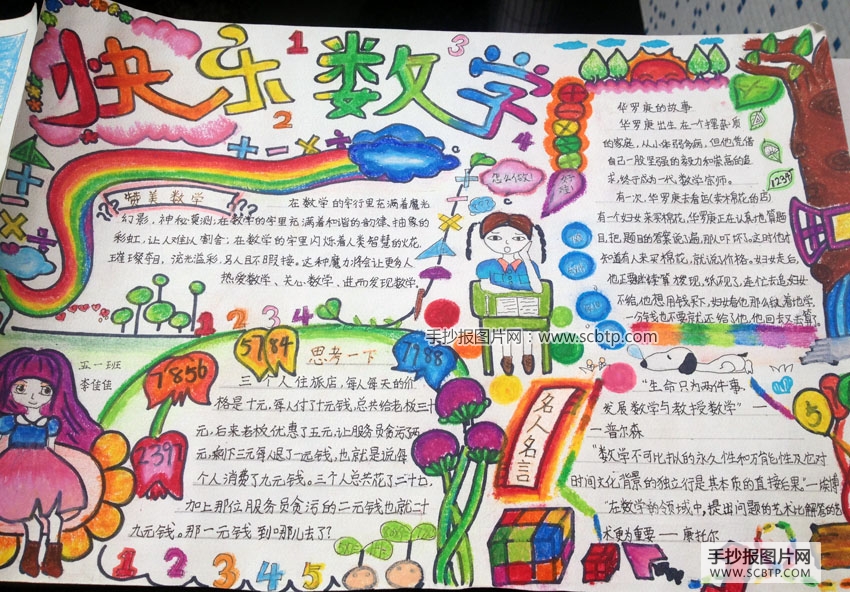 快乐数学
1
2
3
4
赞美数学
在数学的字行里充满着魔光
幻影，神秘莫测；在数学的字里充满着和谐的韵律、抽象的
彩虹，让人难以割舍；在数学的字里闪烁着人类智慧的火花，
璀璨夺目，流光溢彩，另人目不暇接。这种魔力将会让更多人
热爱数学、关心数学，进而发现数学。
???
???
怎么做！
好难！
华罗庚的故事
华罗庚出生在一个摆杂货
的家庭，从小体弱多病，但他凭借
自己一股坚强的毅力和崇高的追
求，终于成为一代数学宗师。
有一次，华罗庚去看店（卖水棉花的店）
有一个妇女来买棉花，华罗庚正在认真地算题
目，把题目的答案说了遍，那人吓坏了。这时他才
知道有人来买棉花，就说了价格。妇女走后，
不给，他想用钱买下，妇女看他那么执着地学，
一分钱也不要就还给了他，他回去又去算了。
123?
1 2 3 4
手抄报图片网：www.scbtp.com
五一班
李佳佳
7856
5784
7988
2397
思考一下
三个人住旅店，每人每天的价
格是十元，每人付了十元钱，总共给老板三十
元，后来老板优惠了五元，让服务员贪污两
元，剩下三元每人退了一元钱，也就是说每
个人消费了九元钱。三个人总共花了二十七，
加上那位服务员贪污的二元钱也就二十
九元钱。那一元钱到哪儿去了？
1 2 3 4 5
名人名言
“生命只为两件事，
发展数学与教授数学”—
—普尔森
“数学不可比拟的永久性和万能性及它对
时间文化背景的独立行是其本质的直接后果。”—埃博
“在数学的领域中，提出问题的艺术比解答的艺
术更为重要 — 康托尔
5
手抄报图片网
WWW.SCBTP.COM